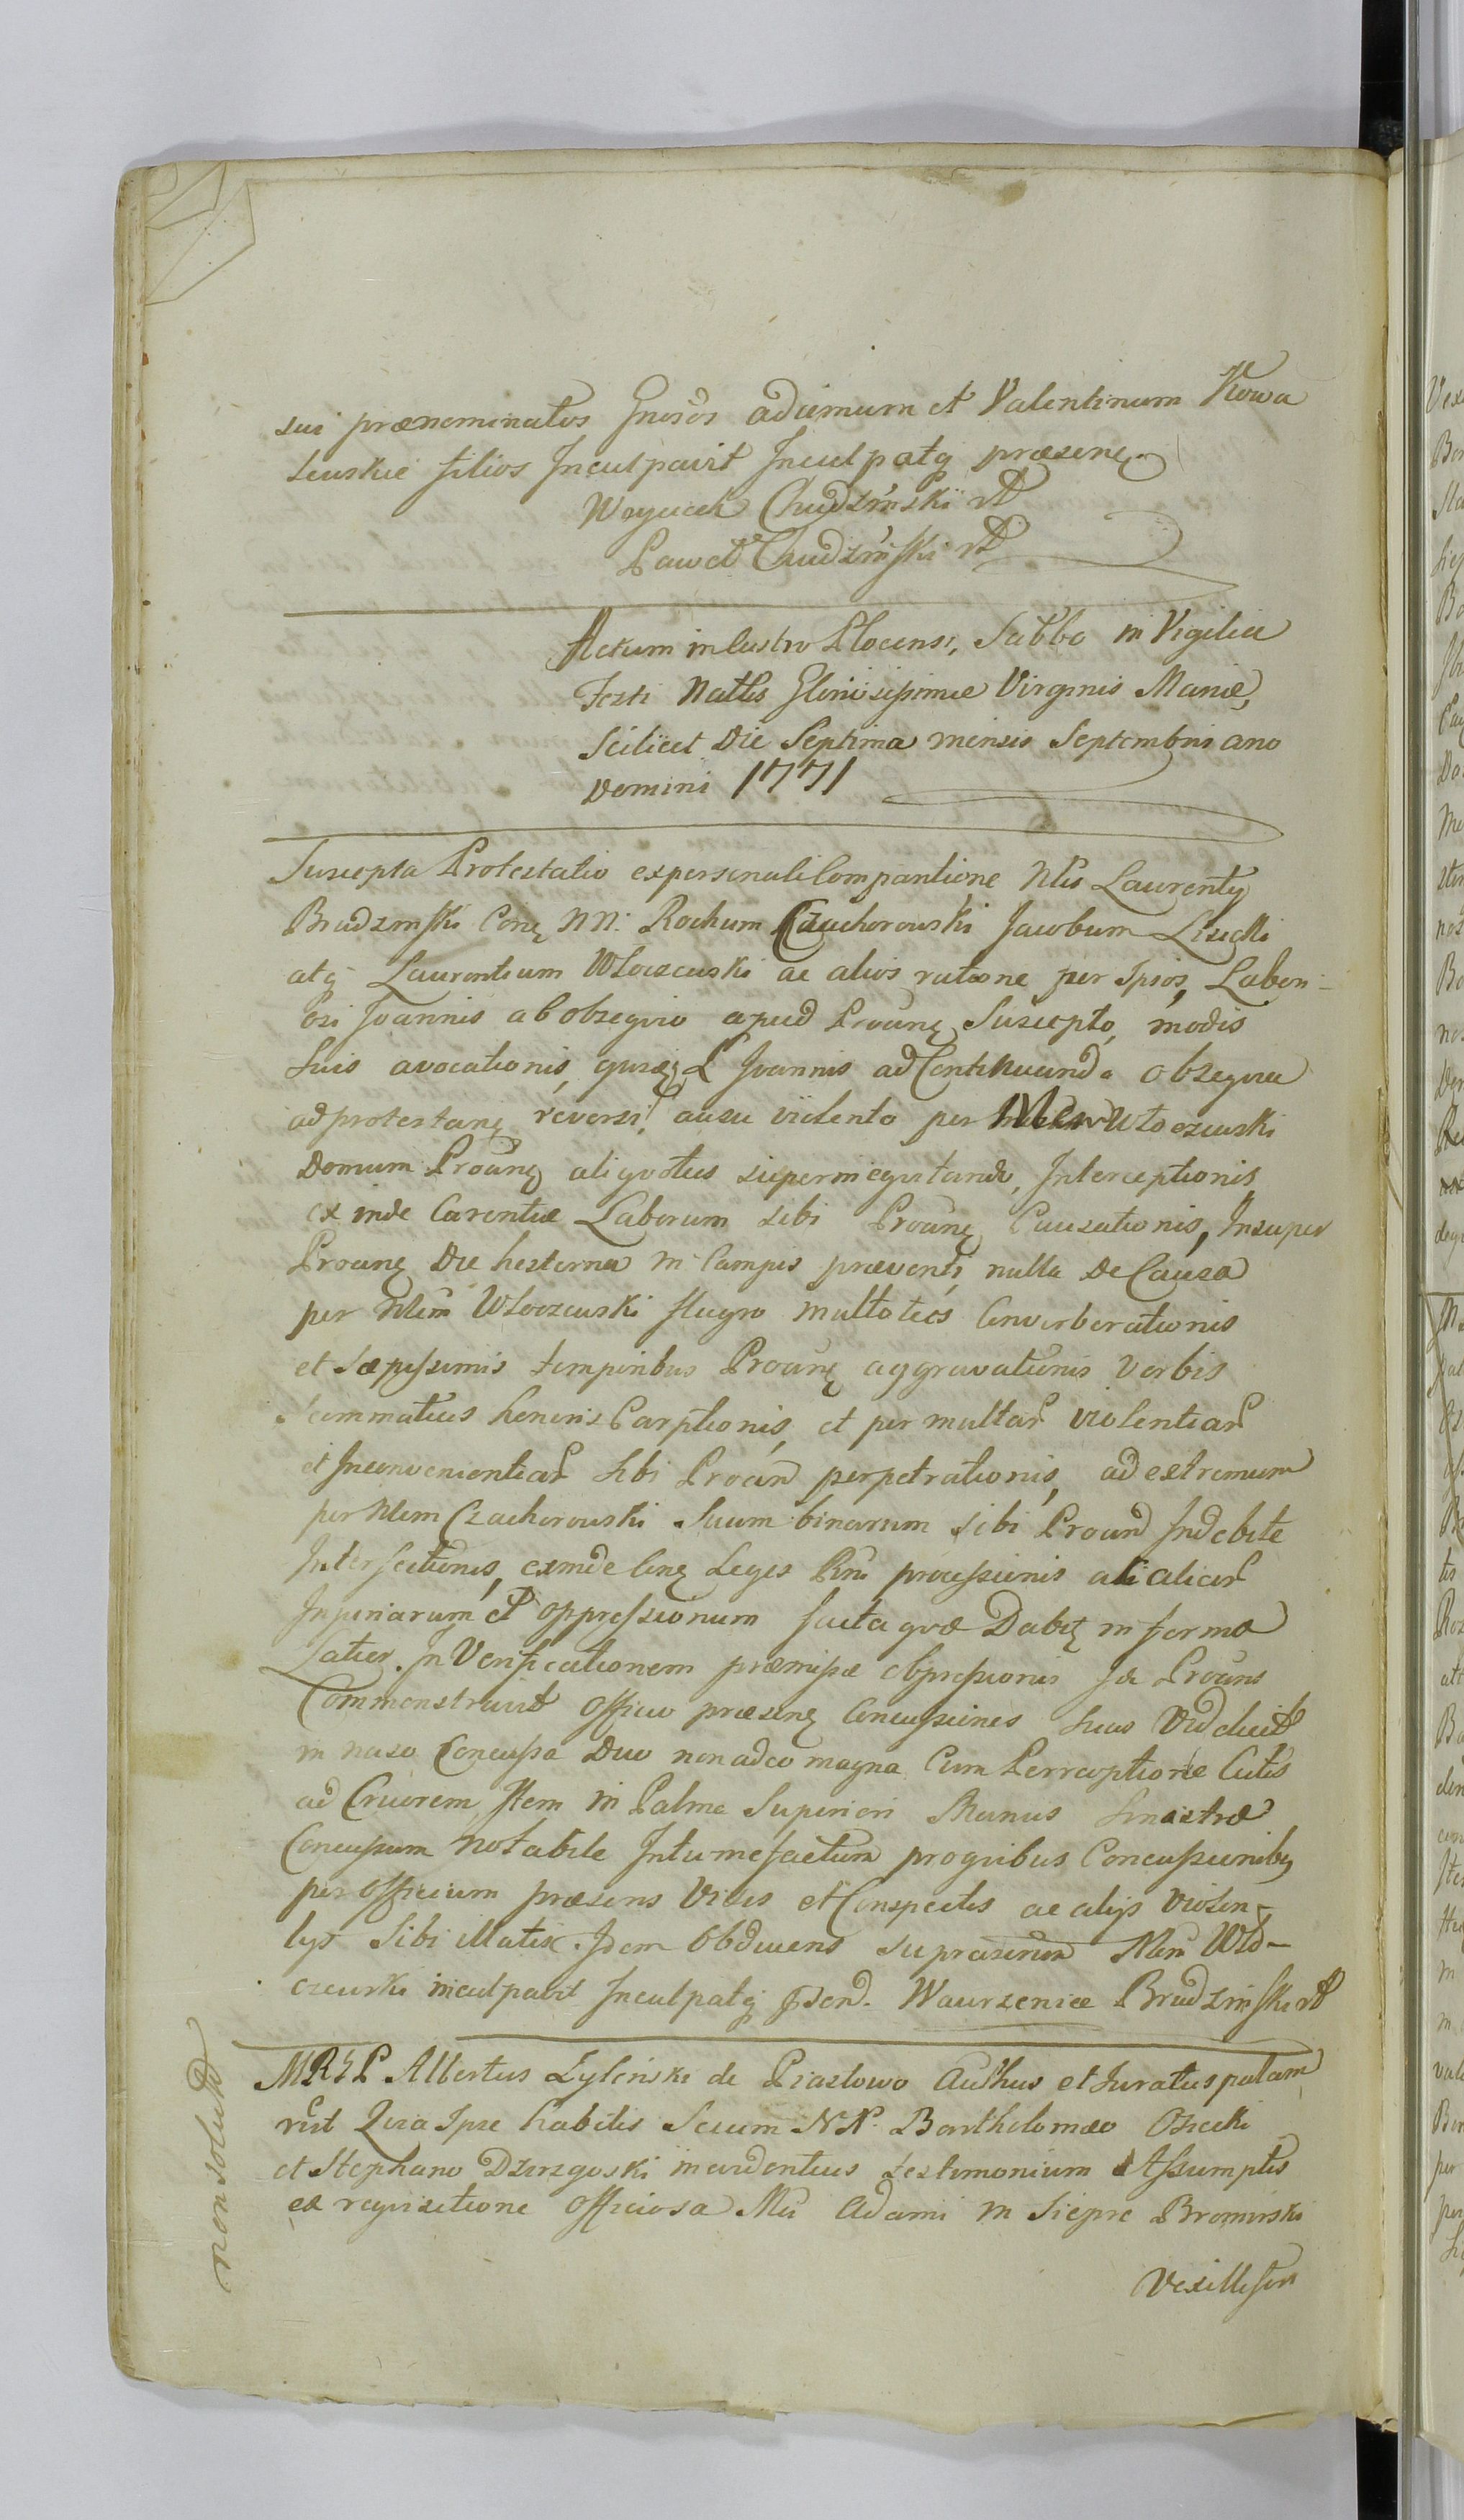 sui prænominatos Gnosos adiemum et Valentinum Kowa
leuskie filios Inculpavit Inculpatq præsenę
Woyciech Chudzinski rk
Paweł Chudzinski rk
Actum in Castro Plocensi, Sabbo in Vigilia
Festi Natlis Gloriosissimæ Virginis Mariæ,
Scilicet Die Septima mensis Septembris ano
Domini 1771
Suscepta Protestatio ex personali Comparitione Nlis Laurenty
Brudzinski Conę NN: Rochum Czachorowski Jacobum Lisicki
atq Laurentium Wloczewski ac alios ratione per Ipsos, Labori-
osi Joannis ab obsequio apud Proanę Suscepto, modis
Suis avocationis, L Joannis ad Continuanda obsequia
ad protestanę reversi, ausu violento per Nlem Wloczewski
Domum Proanę aliquoties superinequitando, Interceptionis
ex inde Carentiæ Laborum sibi Proanę Causationis, Insuper
Proanę Die hesterna in Campis præventi, nulla De Causa
per Nlem Wloczewski flagro multoties Converberationis
et sæpissimis temporibus Proanę aggravationis Verbis
scommaticis honoris Carptionis, et per multar violentiar
et Inconvenientiar sibi Proan perpetrationis, ad extremum
per Nlem Czachorowski Suum binarum sibi Proan Indebite
Interfectionis, exinde Conę Leges Rni processionis aliar
Injuriarum et oppressionum facta quæ Dabit in forma
Latior. In Verificationem præmissæ oppressionis Id Proans
Commonstravit Officio præsenę Concussiones suas Videlicet
in naso Concussa Duo non adeo magna Cum Perruptione Cutis
ad Cruorem Item in Palma Superiori Manus sinistræ
Concussum notabile Intumefactum pro quibus Concussionibus
per Officium præsens Visis et Conspectis ac alys violen-
tys Sibi illatis. Idem Obducens supra Nlem Wlo-
czewski inculpavit Inculpatq Wawrzeniec Brudzinski rk
MRSP Albertus Zylinski de Piastowo Authus et Iuratus palam
rt Quia Ipse habitis Secum NN. Bartholomæo Osiecki
et Stephano Dzierzgoski in evidentius testimonium Assumptis
ex requisitione Officiosa Mci Adami in Siepre Bromirski
Vexilliferi
non solutt